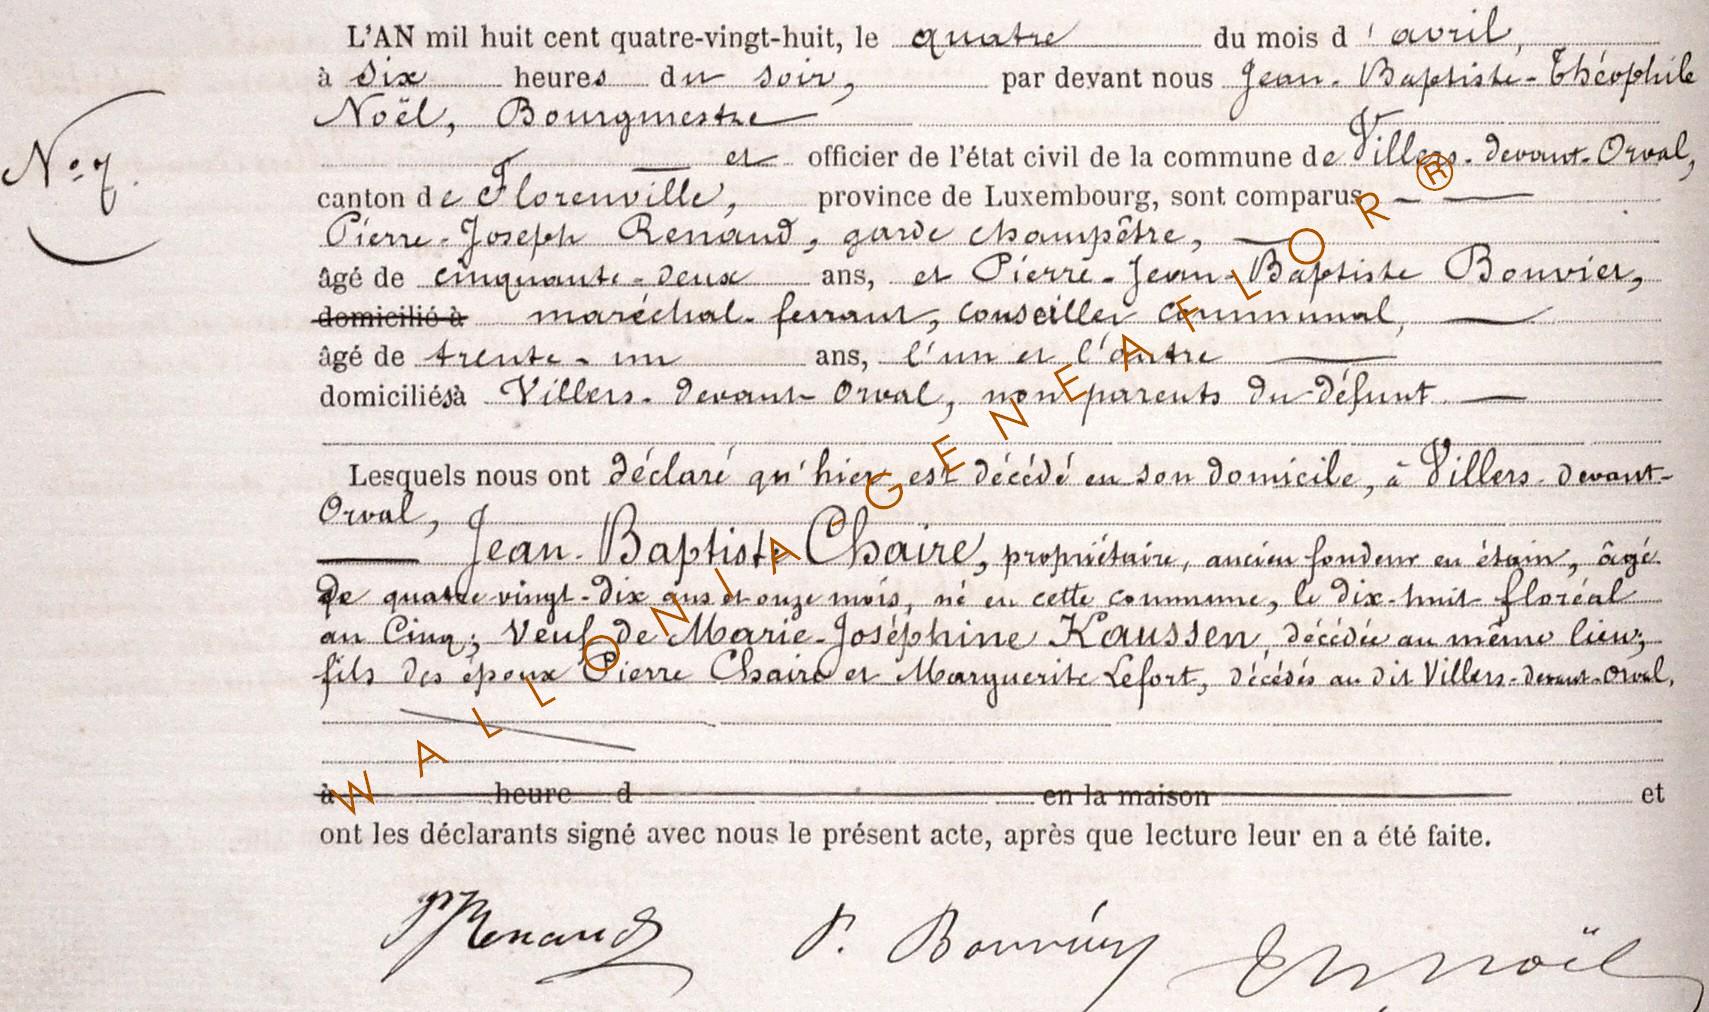 L'AN mil huit cent quatre-vingt-huit, le quatre du mois d'avril,
à six heures du soir, par devant nous Jean-Baptiste-Théophile
Noël, Bourgmestre
N° 7.
et officier de l'état civil de la commune de Villers-devant-Orval,
canton de Florenville, province de Luxembourg, sont comparus
Pierre-Joseph Renaud, garde champêtre,
âgé de cinquante-deux ans, et Pierre-Jean-Baptiste Bouvier,
domicilié à maréchal-ferrant, conseiller communal,
âgé de trente-un ans, l'un et l'autre
domiciliés à Villers-devant-Orval, non parents du défunt
Lesquels nous ont déclaré qu'hier est décédé en son domicile, à Villers-devant-
Orval,
Jean-Baptiste Chaire, propriétaire, ancien fondeur en étain, âgé
de quatre-vingt-dix ans et onze mois, né en cette commune, le dix-huit floréal
an Cinq; veuf de Marie-Joséphine Kaussen, décédée au même lieu;
fils des époux Pierre Chaire et Marguerite Lefort, décédés au dit Villers-devant-Orval,
à heure d en la maison et
ont les déclarants signé avec nous le présent acte, après que lecture leur en a été faite.
P Renaud P. Bouvier Th Noël
WALLONIA-GENEAFLOR®